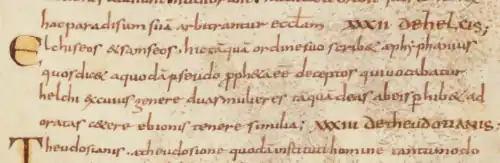 hac paradisum suā arbitrantur eccłam XXXII DE HELCIS;
Elchiseos & sanseos. hic tāquā ordine suo scribit aepyphanius
quos dicit a quodā pseudo propheta ēē deceptos qui uocabatur
helchi ex cuius genere duas mulieres tāquā deas ab eis phib& ad
oratas c&ere ebionis tenere similia; XXXIII DE THEUDOTIANIS
Theudosianis. a theudosione quodā instituti homine tantummodo